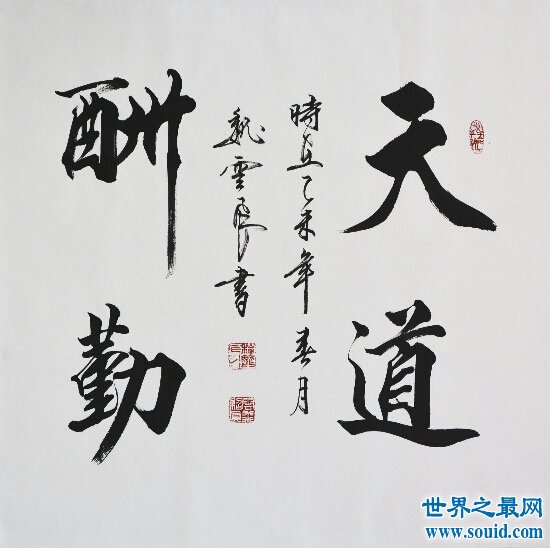 天道
酬勤
時在乙未年春月
魏雲飛書
世界之最网
www.souid.com